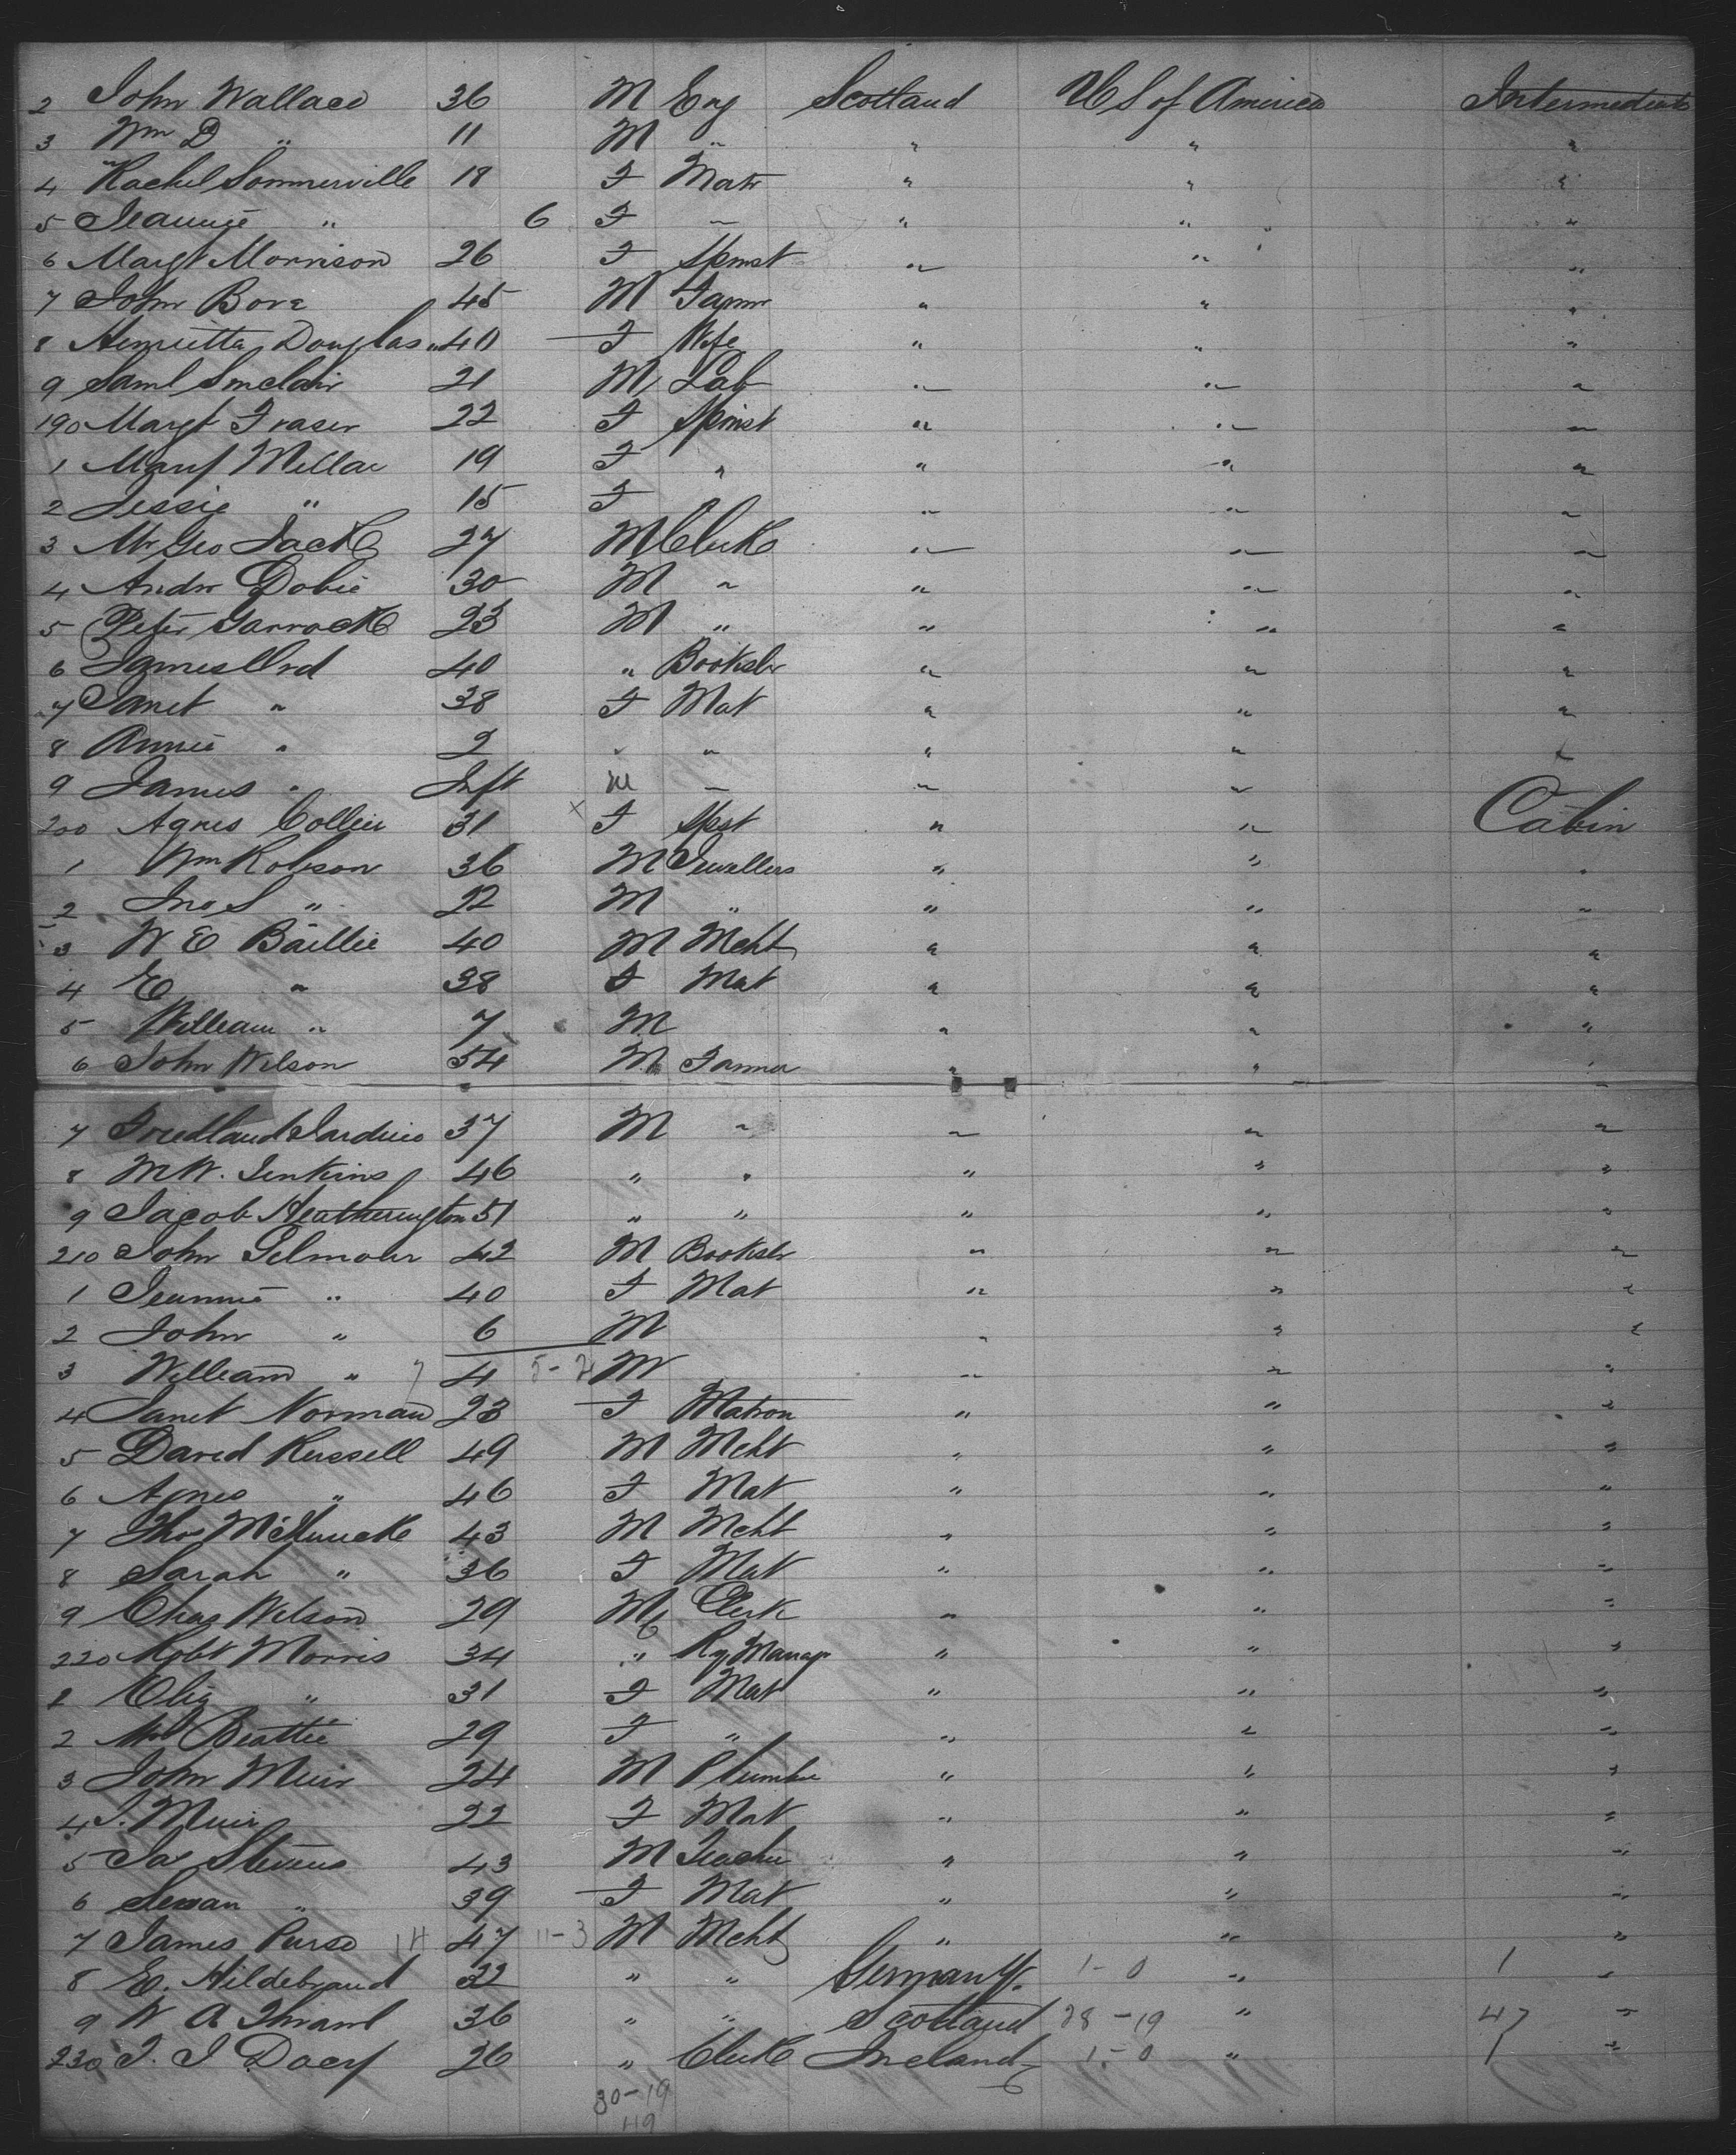 2 John Wallace 36 M Eng Scotland U S of America Intermediate
3 Wm D " 11 M " " " "
4 Rachel Sommerville 18 F Matr " " "
5 " 6 F " " " "
6 Margt Morrison 26 F Spinst " " "
7 John 45 M Farmr " " "
8 Henrietta Douglas 40 F Wife " " "
9 Saml Sinclair 21 M Lab " " "
190 Margt Fraser 22 F Spinst " " "
1 Mary Millar 19 F " " " "
2 Jessie " 15 F " " "
3 Mr Geo Jack 27 M Clerk " " "
4 Andw Dobie 30 M " " " "
5 Peter Garrock 23 M " " " "
6 James Ord 40 " Bookslr " " "
7 Janet " 38 F Mat " " "
8 Annie " 2 " " " " "
9 James " Inft M " " "
200 Agnes Collier 31 F Spst " " Cabin
1 Wm Robson 36 M Jewellers " " "
2 Jno S " 22 M " " " "
3 W E Baillie 40 M Mcht " " "
4 E " 38 F Mat " " "
5 William " 7 M " " "
6 John Wilson 54 M Farmer " " "
7 Jardine 37 M " " " "
8 M W. Jenkins 46 " " " " "
9 Jacob Heatherington 51 " " " " "
210 John Gilmour 42 M Bookslr " " "
1 Jeannie " 40 F Mat " " "
2 John " 6 M " " "
3 William " 7 4 5-2 M " " "
4 Janet Norman 23 F Matron " " "
5 David Russell 49 M Mcht " " "
6 Agnes " 46 F Mat " " "
7 Thos 43 M Mcht " " "
8 Sarah " 36 F Mat " " "
9 Chas Wilson 29 M Clerk " " "
220 Robt Morris 34 " Ry Managr " " "
1 Eliz " 31 F Mat " " "
2 Mrs Beattie 29 F " " " "
3 John Muir 24 M Plumber " " "
4 J. Muir 22 F Mat " " "
5 Jas Stevens 43 M Teacher " " "
6 Susan " 39 F Mat " " "
7 James Purse 14 47 11-3 M Mcht " " "
8 E. Hildebrand 32 " " Germany 1-0 " 1 "
9 W A 36 " " Scotland 28-19 " 47 "
230 J. J Dacy 26 " Clerk Ireland 1-0 " 1 "
30-19
49